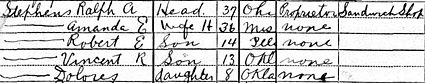 Stephens Ralph A Head 37 Ohi Proprietor Sandwich Shop
Amanda E Wife H 36 Mis none
Robert E Son 14 Ill none
Vincent R Son 13 Okl none
Dolores daughter 8 Okla none